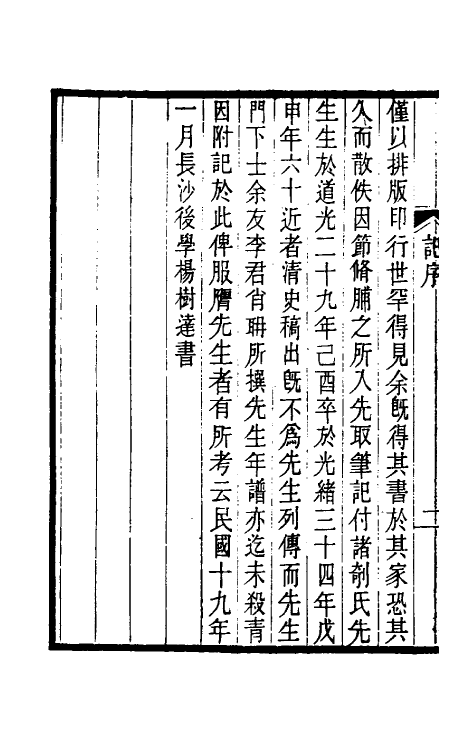 記序
二
僅以排版印行世罕得見余既得其書於其家恐其
久而散佚因節脩脯之所入先取筆記付諸剞氏先
生生於道光二十九年己酉卒於光緒三十四年戊
申年六十近者清史稿出既不爲先生列傳而先生
門下士余友李君肖聃所撰先生年譜亦迄未殺青
因附記於此俾服膺先生者有所考云民國十九年
一月長沙後學楊樹達書